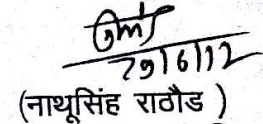 29/6/12
(नाथूसिंह राठौड )